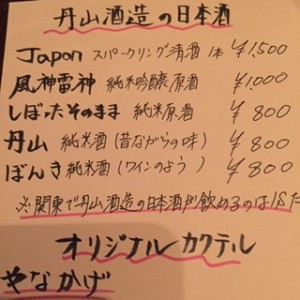 丹山酒造の日本酒
Japon スパークリング清酒 1本 ¥1,500
風神雷神 純米吟醸原酒 ¥1,000
しぼったそのまま 純米原酒 ¥800
丹山 純米酒(昔ながらの味) ¥800
ぼんき 純米酒(ワインのよう) ¥800
※関東で丹山酒造の日本酒が飲めるのは
オリジナルカクテル
やなかげ